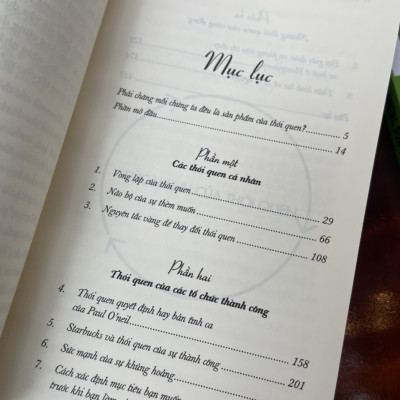 Mục lục
Phải chăng mỗi chúng ta đều là sản phẩm của thói quen? 5
Phần mở đầu 14
Phần một
Các thói quen cá nhân
1. Vòng lặp của thói quen 29
2. Não bộ của sự thèm muốn 66
3. Nguyên tắc vàng để thay đổi thói quen 108
Phần hai
Thói quen của các tổ chức thành công
4. Thói quen quyết định hay bản tình ca
của Paul O'neil 158
5. Starbucks và thói quen của sự thành công 201
6. Sức mạnh của sự khủng hoảng
7. Cách xác định mục tiêu bạn muốn
trước khi bạn làm